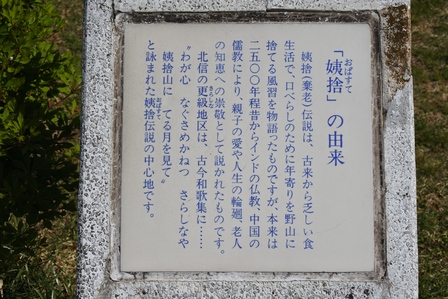 「姨捨」の由来
おばすて
姨捨(棄老)伝説は、古来から乏しい食
生活で、口べらしのために年寄りを野山に
捨てる風習を物語ったものですが、本来は
二五〇〇年程昔からインドの仏教、中国の
儒教により、親子の愛や人生の輪廻、老人
の知恵への崇敬として説かれたものです。
北信の更級地区は、古今和歌集に……
さらしな
〝わが心 なぐさめかねつ さらしなや
姨捨山に てる月を見て〟
と詠まれた姨捨伝説の中心地です。
おばすて